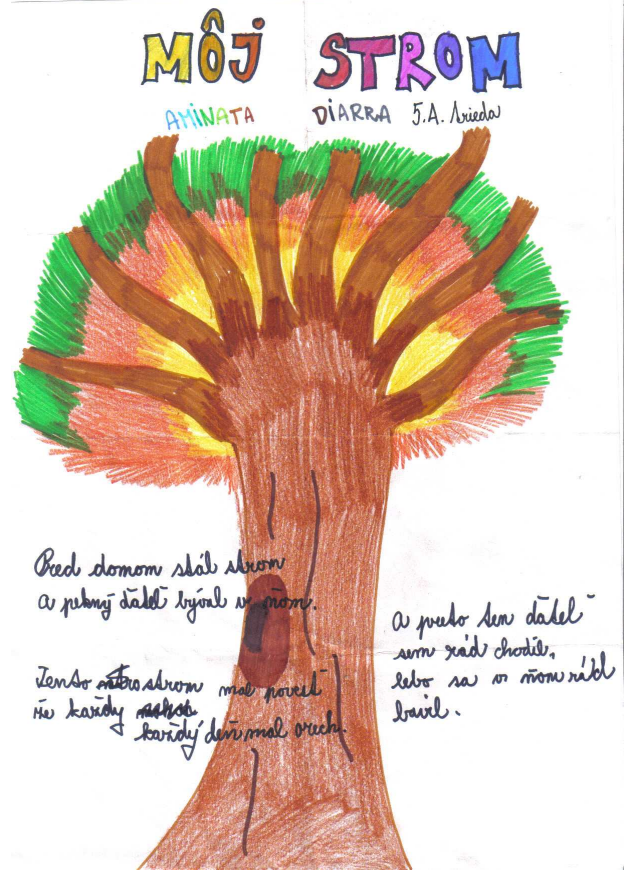 MÔJ STROM
AMINATA DIARRA 5.A. trieda
Pred domom stál strom
a pekný ďateľ býval v ňom.
Tento strom mal povesť
že každý
každý deň mal orech.
A preto ten ďateľ
sem rád chodil,
lebo sa v ňom rád
bavil.